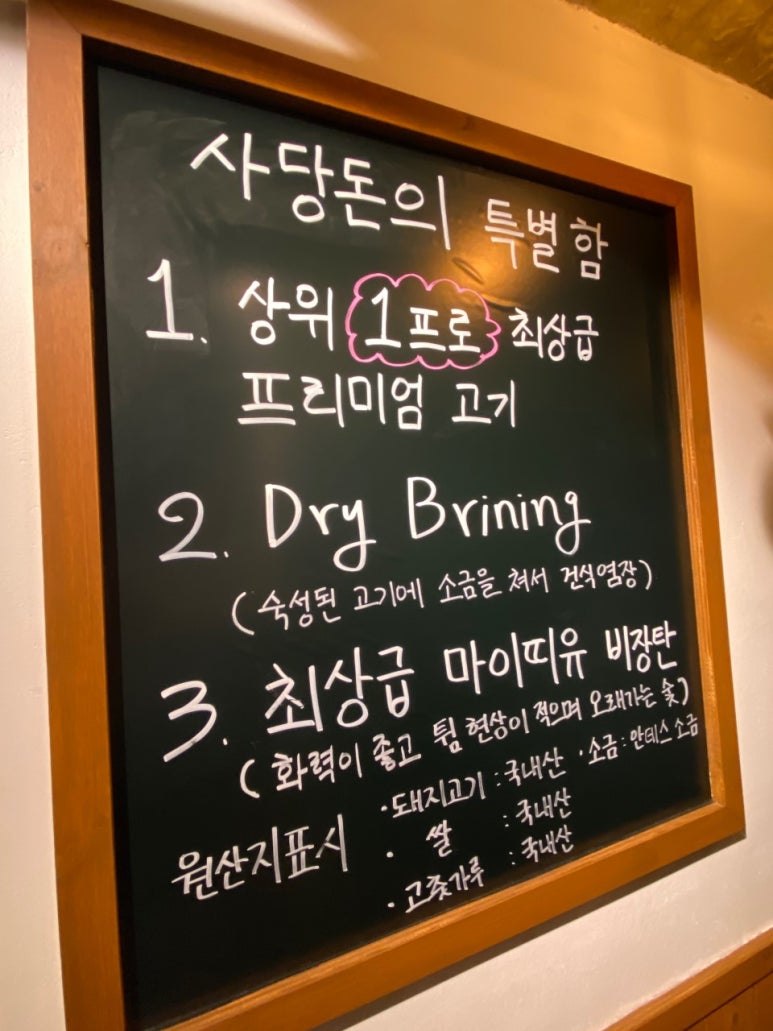 사당돈의 특별함
1. 상위 1프로 최상급
프리미엄 고기
2. Dry Brining
(숙성된 고기에 소금을 쳐서 건식염장)
3. 최상급 마이띠유 비장탄
(화력이 좋고 튐 현상이 적으며 오래가는 숯)
원산지표시 · 돼지고기 : 국내산 · 소금 : 안데스 소금
· 쌀 : 국내산
· 고춧가루 : 국내산